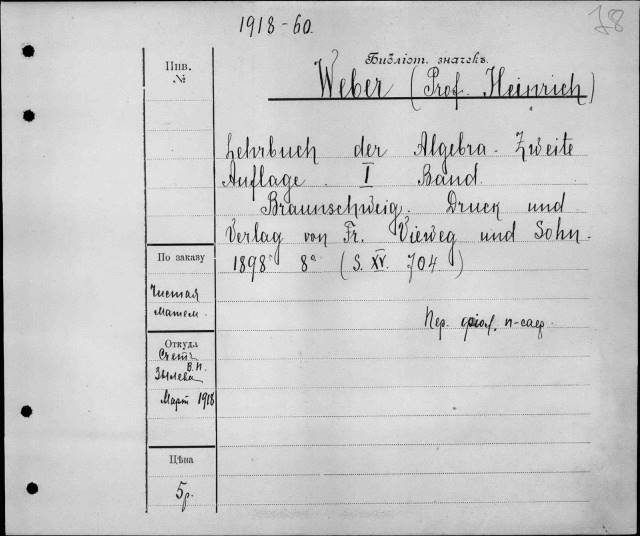 1918-60.
78
Инв.
№
Библіот. значекъ.
Weber (Prof. Heinrich)
Lehrbuch der Algebra. Zweite
Auflage. I Band.
Braunschweig. Druck und
Verlag von Fr. Vieweg und Sohn.
1898 8° (S. XV. 704.)
По заказу
Чистая
матем.
Пер.
Откуда
Счетъ
В.П.
Март 1918
Цѣна
5р.